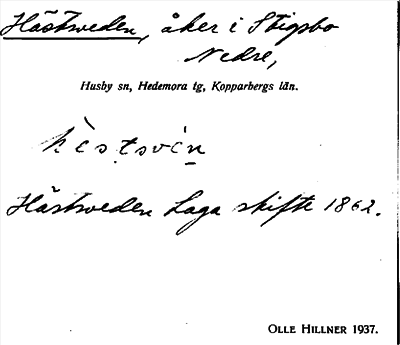 Hästsveden, åker i Stigsbo
Nedre,
Husby sn, Hedemora tg, Kopparbergs län.
hèstsvén
Hästsveden Laga skifte 1862.
OLLE HILLNER 1937.